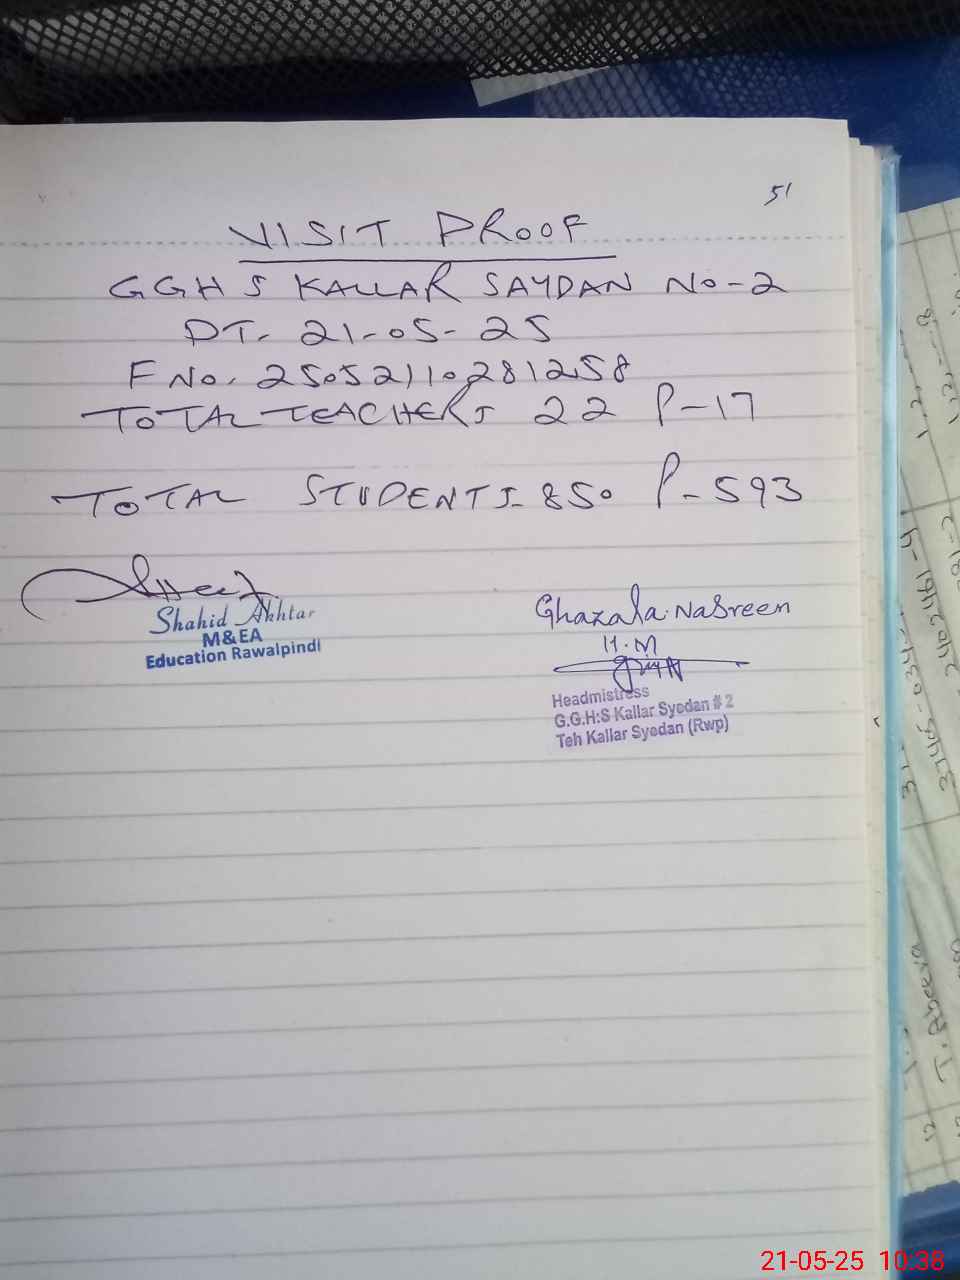 51
VISIT PROOF
GGHS KALLAR SAYDAN NO-2
DT- 21-05-25
F NO. 25052110281258
TOTAL TEACHERS 22 P-17
TOTAL STUDENTS-850 P-593
Shahid Akhtar
M&EA
Education Rawalpindi
Ghazala Nasreen
H.M
Headmistress
G.G.H:S Kallar Syedan # 2
Teh Kallar Syedan (Rwp)
21-05-25 10:38